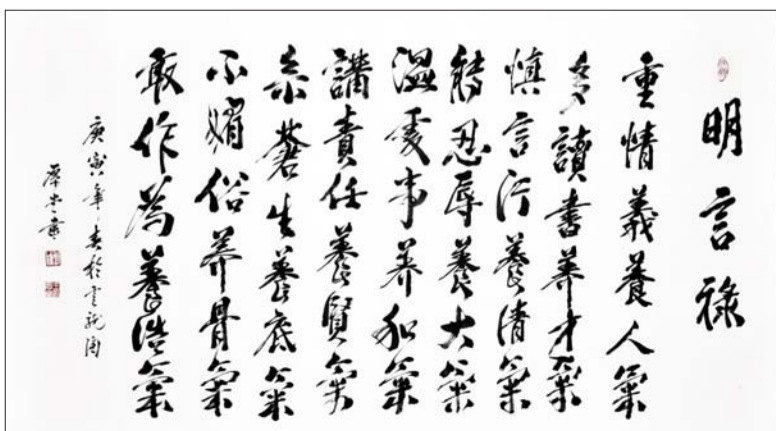 明言禄
重情義養人氣
多讀書养才氣
慎言行養清氣
能忍辱養大氣
温處事养和氣
講責任養賢氣
系蒼生養底氣
不媚俗养骨氣
敢作為養浩氣
庚寅年春於雲龍閣